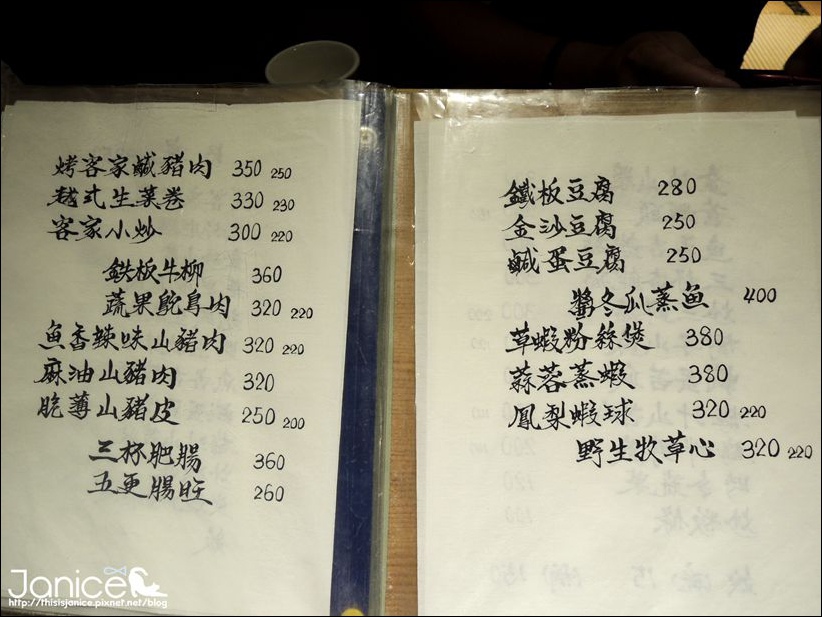 烤客家鹹豬肉 350 250
越式生菜卷 330 230
客家小炒 300 220
鉄板牛柳 360
蔬果鴕鳥肉 320 220
魚香辣味山豬肉 320 220
麻油山豬肉 320
脆薄山豬皮 250 200
三杯肥腸 360
五更腸旺 260
鐵板豆腐 280
金沙豆腐 250
鹹蛋豆腐 250
醬冬瓜蒸魚 400
草蝦粉絲煲 380
蒜蓉蒸蝦 380
鳳梨蝦球 320 220
野生牧草心 320 220
Janice
http://thisisjanice.pixnet.net/blog